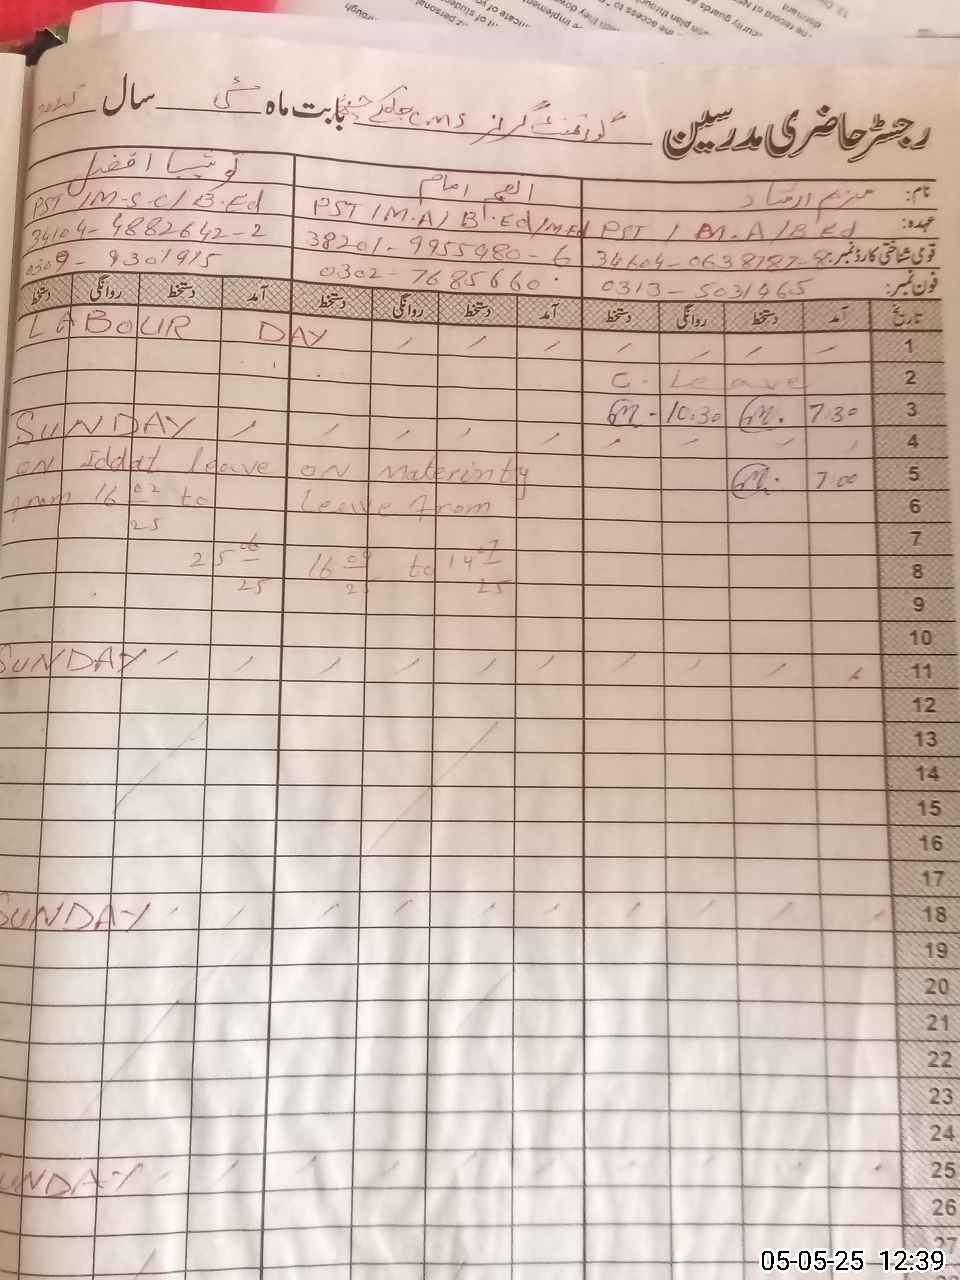 رجسٹر حاضری مدرسین گورنمنٹ گرلز CMS بابت ماہ مئی سال 2025
نام:
عہدہ: PST / M.A / B.Ed
قومی شناختی کارڈ نمبر: 34604-0638787-8
فون نمبر: 0313-5031465
العم امام
PST / M.A / B.Ed / M.Ed
38201-9955980-6
0302-7685660
افضل
PST / M.S.C / B.Ed
34104-4882642-2
0309-9301915
تاریخ آمد دستخط روانگی دستخط آمد دستخط روانگی دستخط آمد دستخط روانگی دستخط
1 LABOUR DAY
2 C. Leave
3 7:30 10:30
4 SUNDAY
5 7:00
on Iddat leave
from 16 02/25 to
25 06/25
on Materinty
Leave from
16 04/25 to 14 07/25
6
7
8
9
10
11 SUNDAY
12
13
14
15
16
17
18 SUNDAY
19
20
21
22
23
24
25 SUNDAY
26
27
05-05-25 12:39